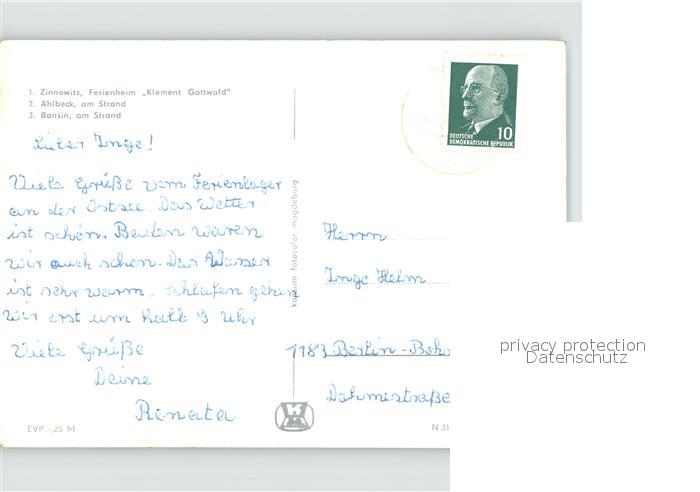 1. Zinnowitz, Ferienheim „Klement Gottwald"
2. Ahlbeck, am Strand
3. Bansin, am Strand
Lieber Ingo!
Viele Grüße vom Ferienlager
an der Ostsee. Das Wetter
ist schön. Baden waren
wir auch schon. Das Wasser
ist sehr warm. Schlafen gehen
wir erst um halb 9 Uhr
Viele Grüße
Deine
Renata
EVP -,25 M
kosmum fotocolor magdeburg
DEUTSCHE
DEMOKRATISCHE REPUBLIK
10
Herrn
Ingo Helm
1183 Berlin-Boh
Dahmestraße
N 31
privacy protection
Datenschutz